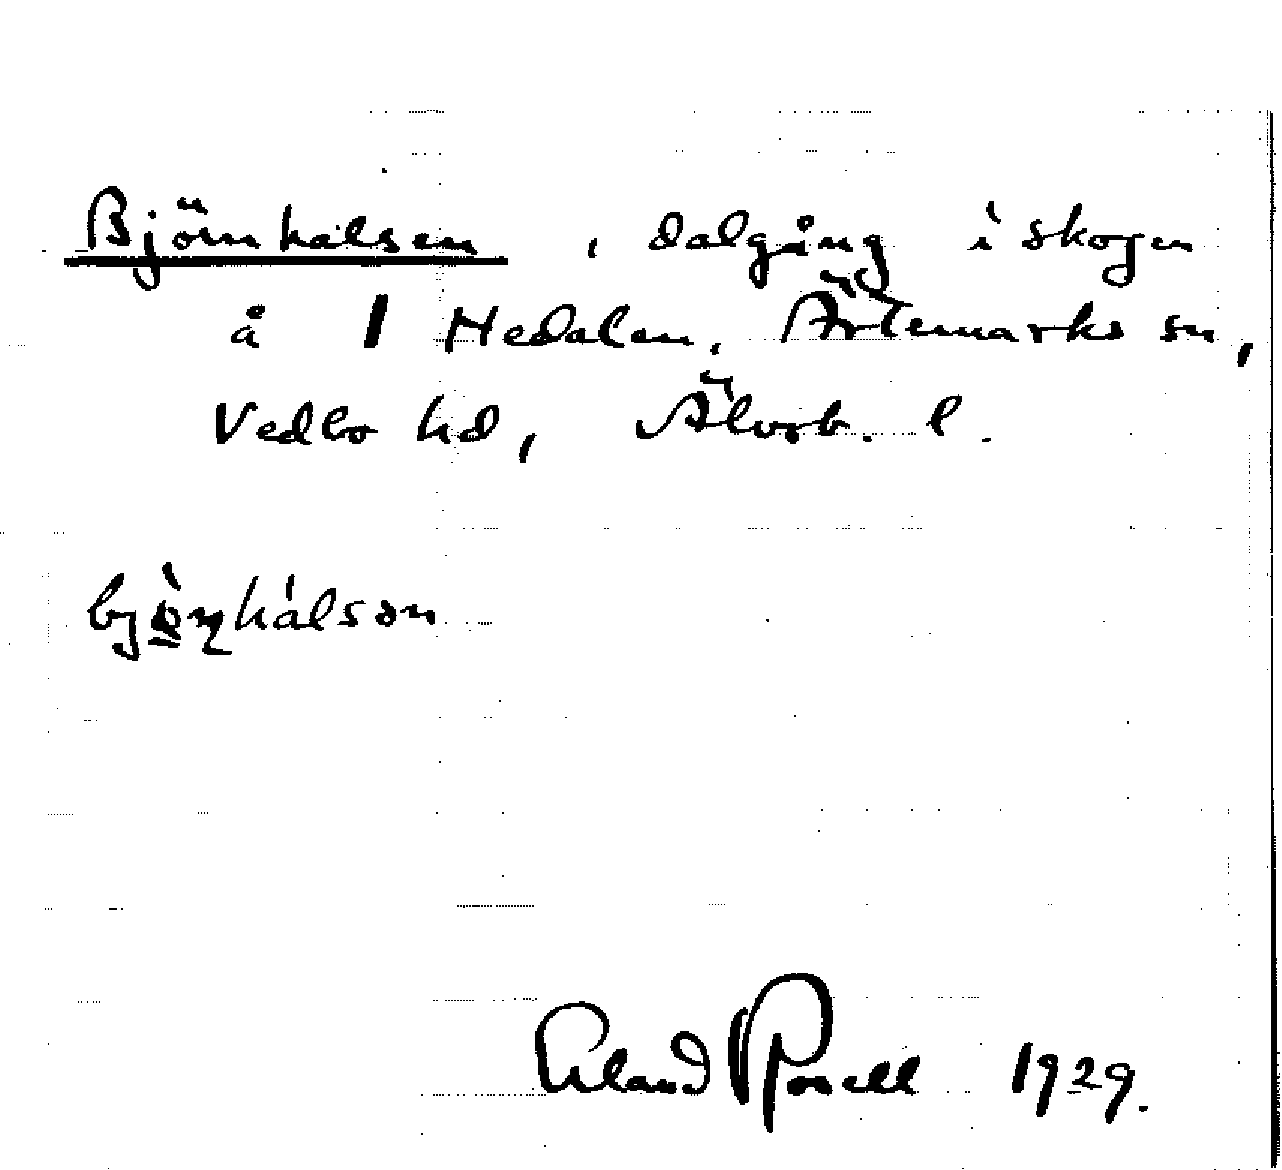 Björnhalsen, dalgång i skogen
å 1 Hedalen, Ärtemarks sn,
Vedbo hd, Älvsb. l.
bjò̱ṇhálsən
Erland Rosell 1929.